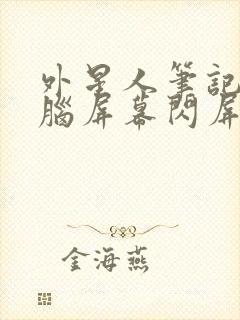 外星人筆記
腦屏幕閃屏
金海燕